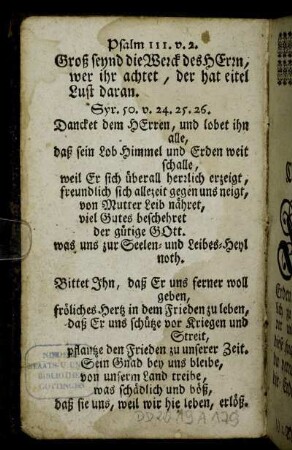 Psalm 111. v. 2.
Groß seynd die Werck des HErrn,
wer ihr achtet, der hat eitel
Lust daran.
Syr. 50. v. 24. 25. 26.
Dancket dem HErren, und lobet ihn
alle,
daß sein Lob Himmel und Erden weit
schalle,
weil Er sich überall herrlich erzeigt,
freundlich sich allezeit gegen uns neigt,
von Mutter Leib nähret,
viel Gutes beschehret
der gütige GOtt.
was uns zur Seelen- und Leibes-Heyl
noth.
Bittet Ihn, daß Er uns ferner woll
geben,
fröliches Hertz in dem Frieden zu leben,
daß Er uns schütze vor Kriegen und
Streit,
pflantze den Frieden zu unserer Zeit.
Sein Gnad bey uns bleibe,
von unserm Land treibe,
was schädlich und böß,
daß sie uns, weil wir hie leben, erlöß.
STAATS-U. UNIV.
BIBLIOTHEK
GÖTTINGEN